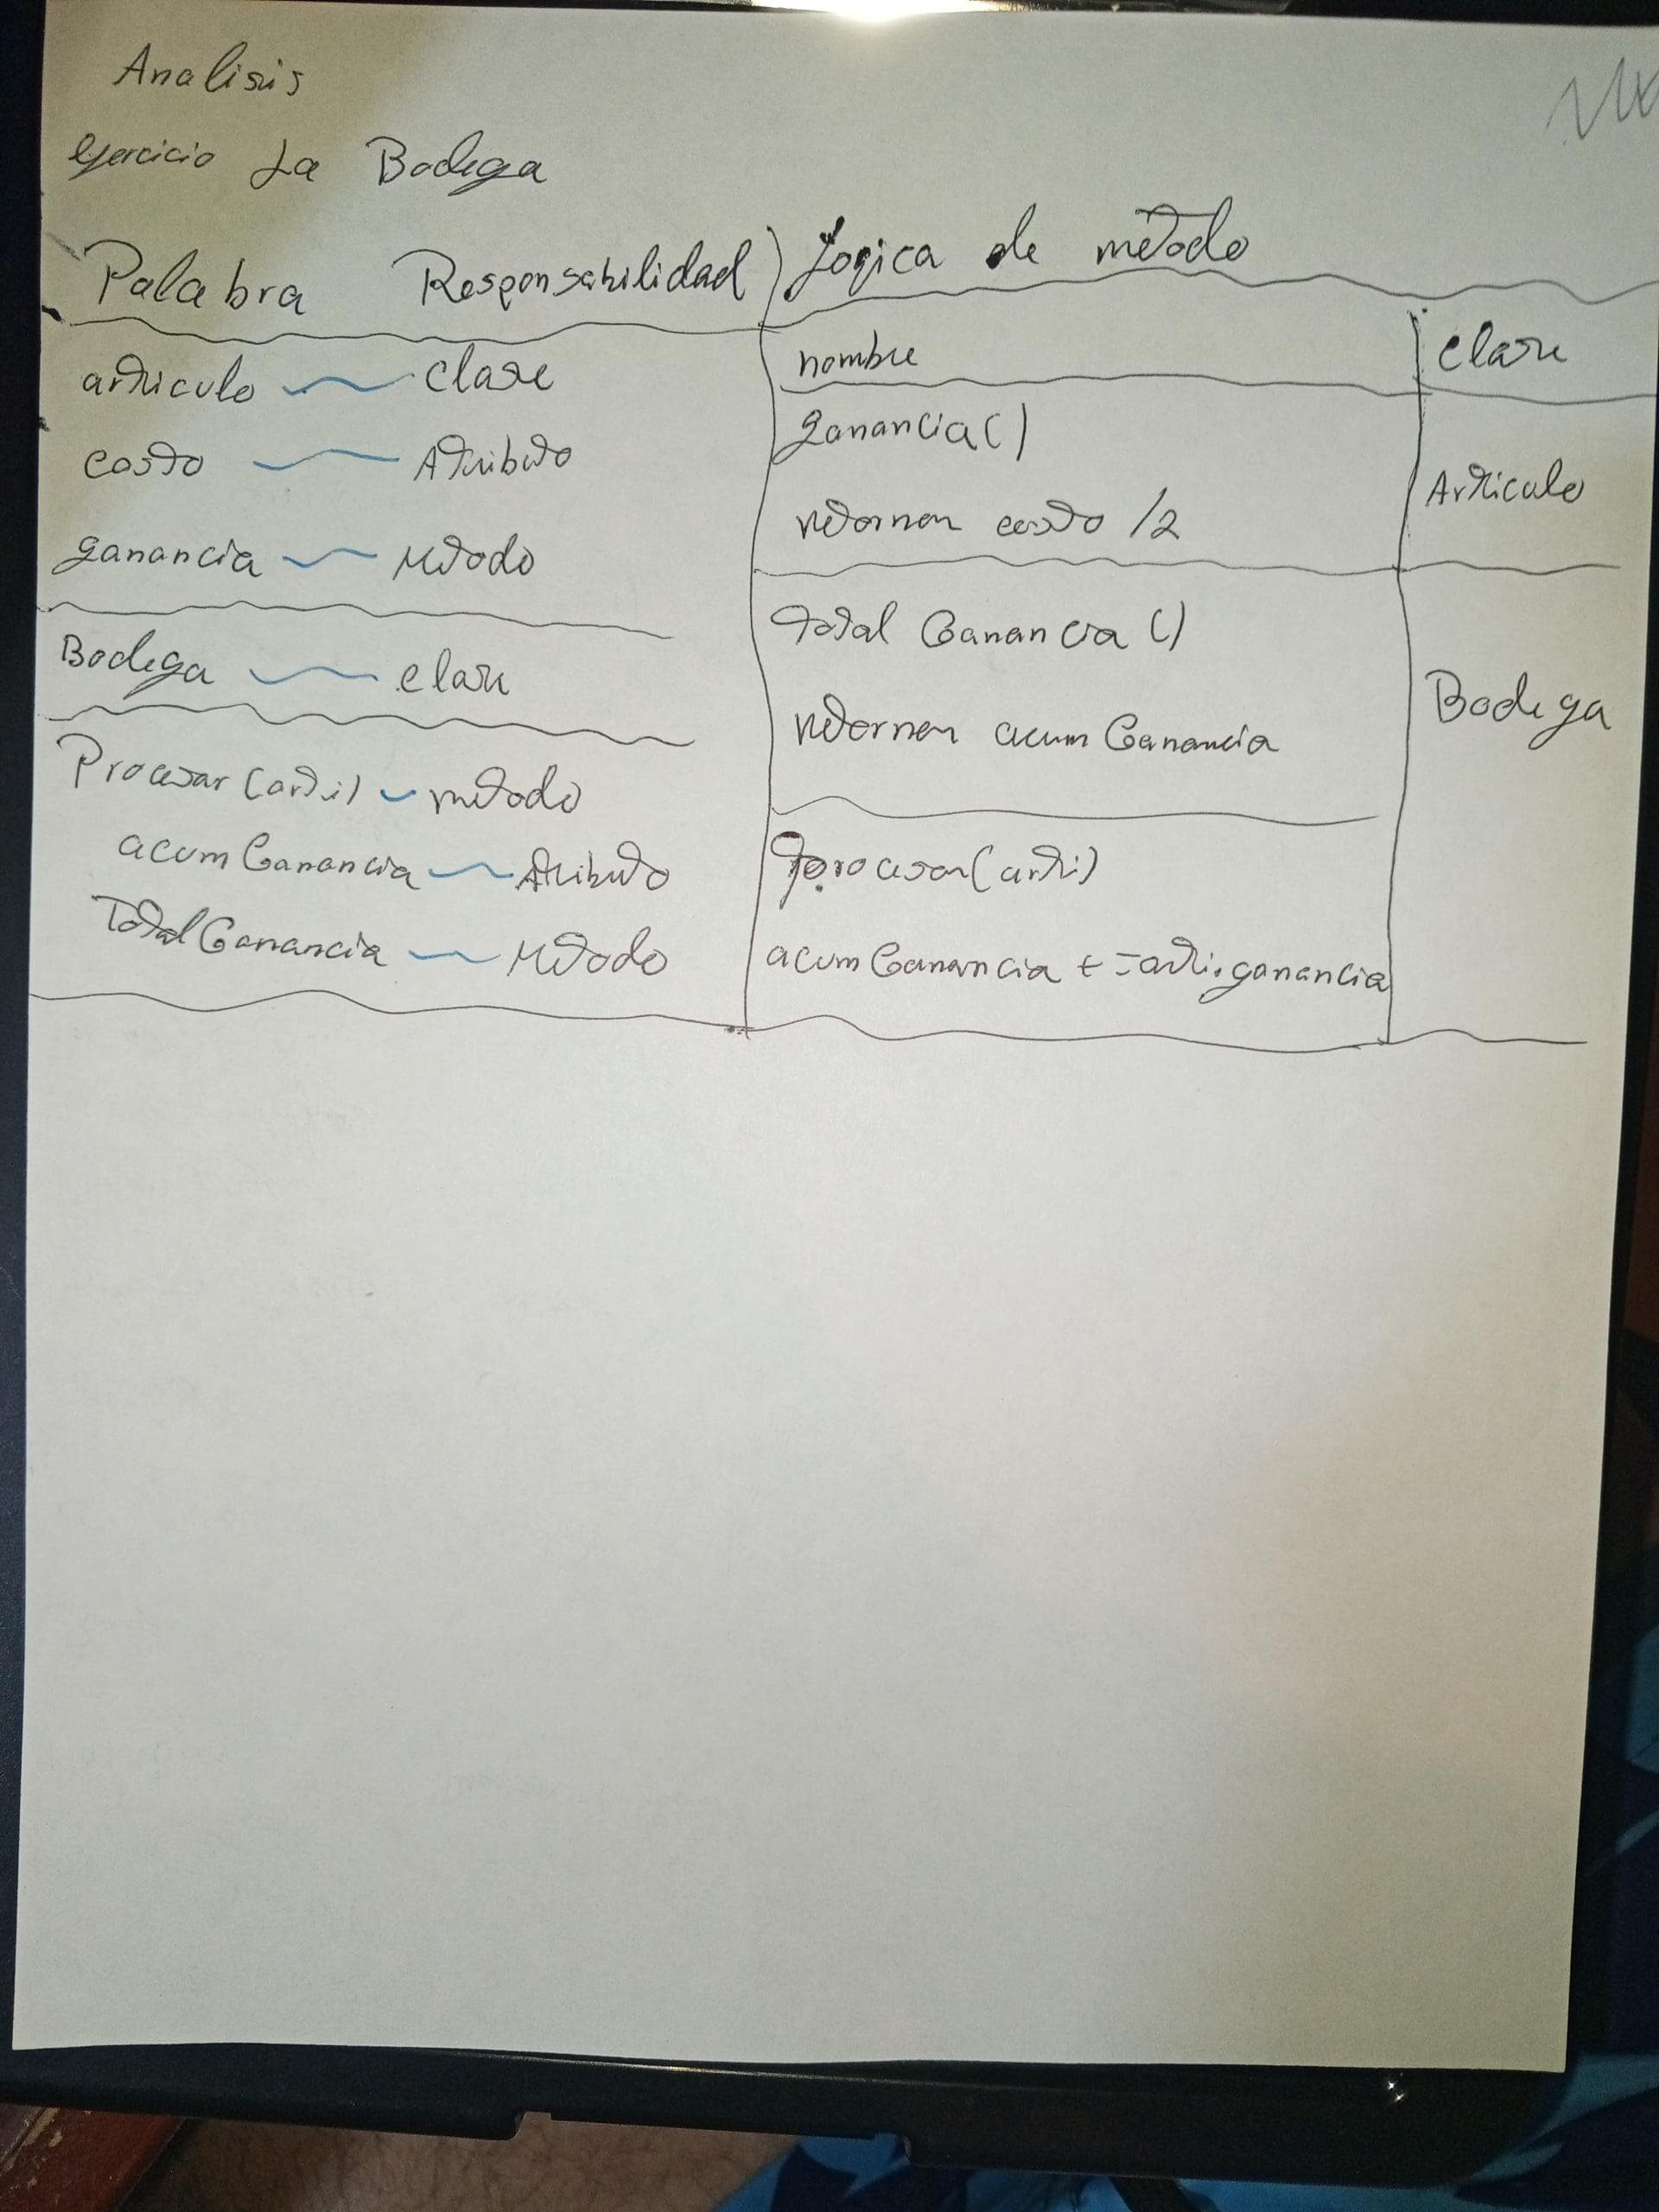 Analisis
ejercicio La Bodega
Palabra Responsabilidad
articulo clase
costo Atributo
ganancia Metodo
Bodega clase
Procesar (arti) metodo
acum Ganancia Atributo
Total Ganancia Metodo
Logica de metodo
nombre clase
ganancia ()
retornar costo /2
Articulo
total Ganancia ()
retornar acum Ganancia
Bodega
procesar (arti)
acum Ganancia += arti.ganancia